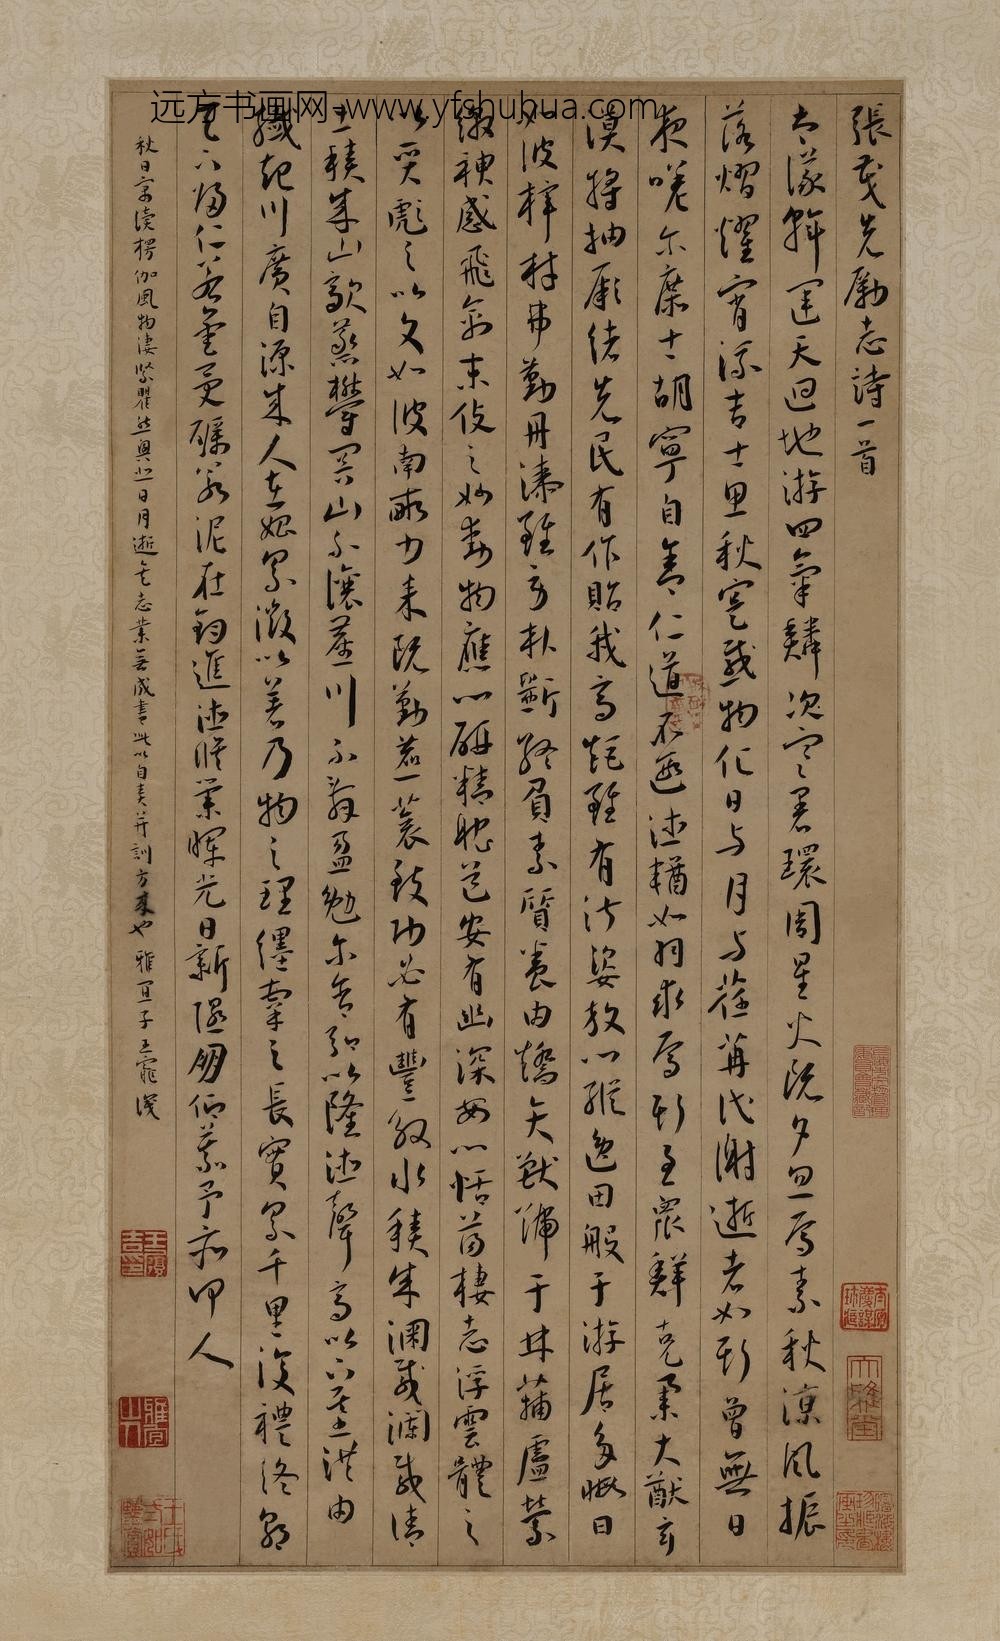 远方书画网 www.yfshuhua.com
張茂先勵志詩一首
大儀斡運天迴地游四氣鱗次寒暑環周星火既夕忽焉素秋涼風振
落熠燿宵流吉士思秋寔感物化日与月与荏苒代謝逝者如斯曾無日
夜嗟尔庶士胡寧自舍仁道不遐德輶如羽求焉斯至衆鮮克舉大猷玄
漠將抽厥緒先民有作貽我高矩雖有淑姿放心縱逸田般于游居多暇日
如彼梓材弗勤丹漆雖勞朴斲終負素質養由矯矢獸號于林蒲盧縈
繳神感飛禽末伎之妙動物應心研精耽道安有幽深安心恬蕩棲志浮雲體之
以質彪之以文如彼南畝力耒既勤藨蓘致功必有豐殷水積成淵載瀾載清
土積成山歊蒸鬱冥山不讓塵川不辭盈勉尔含弘以隆德聲高以下基洪由
纖起川廣自源成人在始累微以著乃物之理纆牽之長實累千里復禮終朝
天下歸仁若金受礪若泥在鈞進德脩業暉光日新隰朋仰慕予亦何人
秋日齋讀楞伽風物淒緊瞿然興悲日月逝矣志業無成書此以自責并訓方来也 雅宜子王寵識